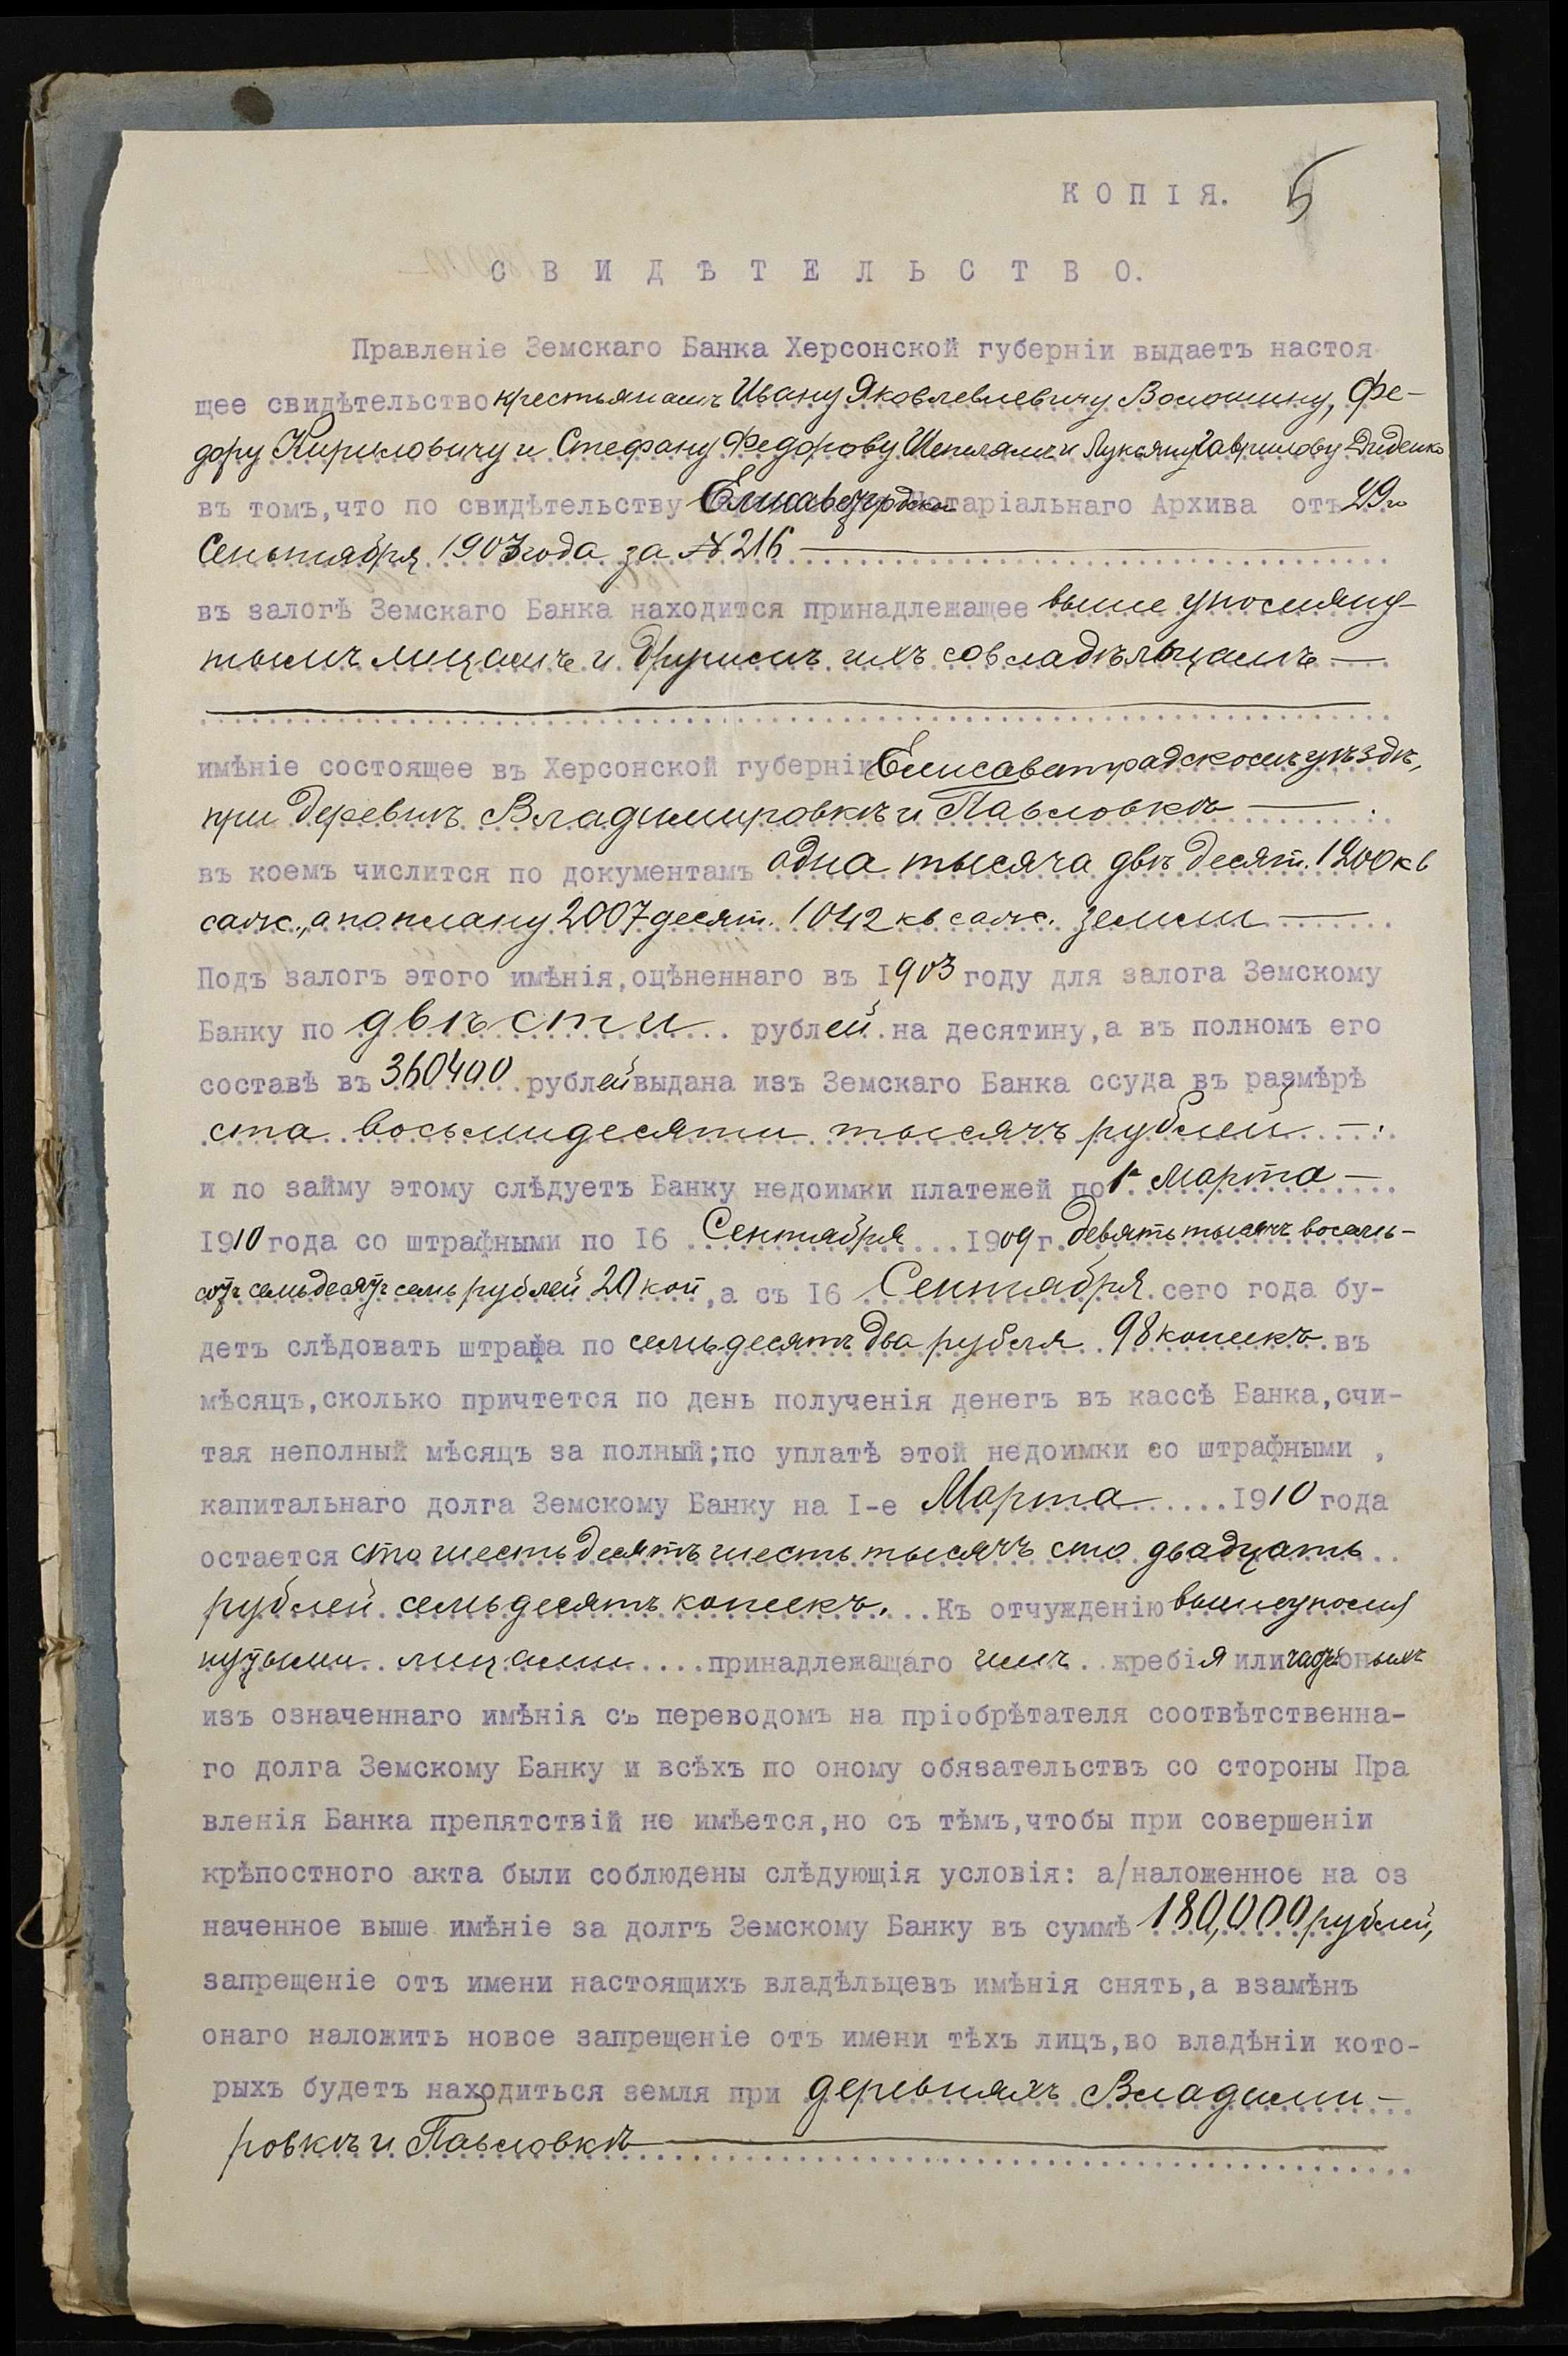 КОПІЯ. 5
СВИДѢТЕЛЬСТВО.
Правленіе Земскаго Банка Херсонской губерніи выдаетъ настоя
щее свидѣтельство крестьянамъ Ивану Яковлевлевичу Волошину, Фе-
дору Кириловичу и Стефану Федорову Шепелямъ и Лукьяну Гаврилову Диденко
въ томъ, что по свидѣтельству Елисаветградскаго Нотаріальнаго Архива отъ 29го
Сентября 1903 года за № 216
въ залогѣ Земскаго Банка находится принадлежащее выше упомяну-
тымъ лицамъ и другимъ ихъ совладѣльцамъ —
имѣніе состоящее въ Херсонской губерніи Елисаветградскомъ уѣздѣ,
при деревнѣ Владимировкѣ и Павловкѣ —
въ коемъ числится по документамъ одна тысяча двѣ десят. 1200 кв
саж., а по плану 2007 десят. 1042 кв саж. земли —
Подъ залогъ этого имѣнія, оцѣненнаго въ 1903 году для залога Земскому
Банку по двѣсти рублей на десятину, а въ полномъ его
составѣ въ 360400 рублей выдана изъ Земскаго Банка ссуда въ размѣрѣ
ста восьмидесяти тысячъ рублей —
и по займу этому слѣдуетъ Банку недоимки платежей по 1е Марта —
1910 года со штрафными по 16 Сентября 1909 г. девять тысячъ восемь-
сотъ семьдесятъ семь рублей 20 коп, а съ 16 Сентября сего года бу-
детъ слѣдовать штрафа по семьдесятъ два рубля 98 копеекъ въ
мѣсяцъ, сколько причтется по день полученія денегъ въ кассѣ Банка, счи-
тая неполный мѣсяцъ за полный; по уплатѣ этой недоимки со штрафными ,
капитальнаго долга Земскому Банку на I-е Марта 1910 года
остается сто шестьдесятъ шесть тысячъ сто двадцать
рублей семьдесятъ копеекъ. Къ отчужденію вышеупомя
нутыми лицами принадлежащаго имъ жребія или частей оныхъ
изъ означеннаго имѣнія съ переводомъ на пріобрѣтателя соотвѣтственна-
го долга Земскому Банку и всѣхъ по оному обязательствъ со стороны Пра
вленія Банка препятствій не имѣется, но съ тѣмъ, чтобы при совершеніи
крѣпостного акта были соблюдены слѣдующія условія: а/наложенное на оз
наченное выше имѣніе за долгъ Земскому Банку въ суммѣ 180,000 рублей,
запрещеніе отъ имени настоящихъ владѣльцевъ имѣнія снять, а взамѣнъ
онаго наложить новое запрещеніе отъ имени тѣхъ лицъ, во владѣніи кото-
рыхъ будетъ находиться земля при деревняхъ Владими-
ровкѣ и Павловкѣ